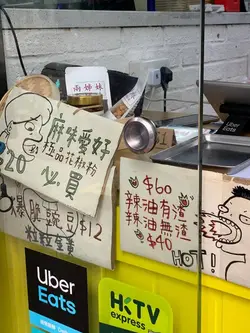 兩姊妹
麻味愛好
極品花椒粉
$20 必買
爆脆豌豆 $12
粒粒金黃
$60
辣油有渣
辣油無渣
$40
HOT!
Uber
Eats
Uber
Eats
HKTV
express